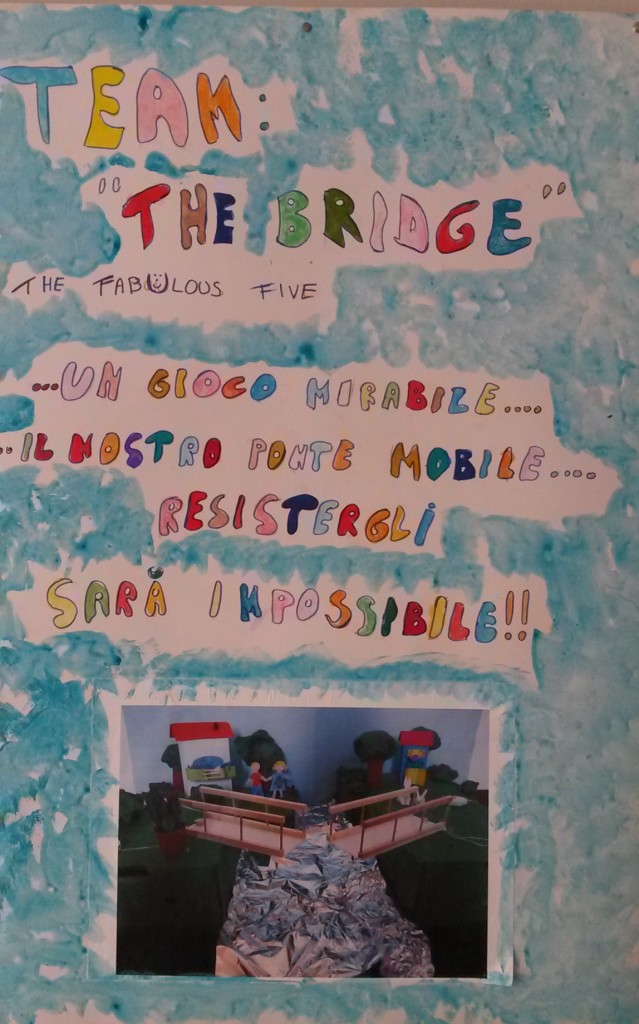 TEAM:
"THE BRIDGE"
THE FABULOUS FIVE
...UN GIOCO MIRABILE....
..IL NOSTRO PONTE MOBILE....
RESISTERGLI
SARÀ IMPOSSIBILE!!